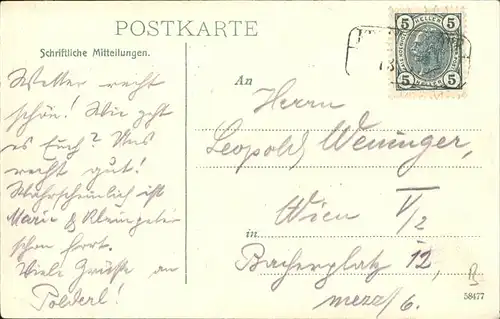 POSTKARTE
Schriftliche Mitteilungen.
Wetter recht
schön! Wie geht
es Euch? Uns
recht gut!
Wahrscheinlich ist
Marie &
schon fort.
Viele Grüsse an
Polderl!
5 HELLER 5
5 HELLER 5
An
Herrn
Leopold Weninger,
Wien V/2
in
Bacherplatz 12,
mezz/6.
58477